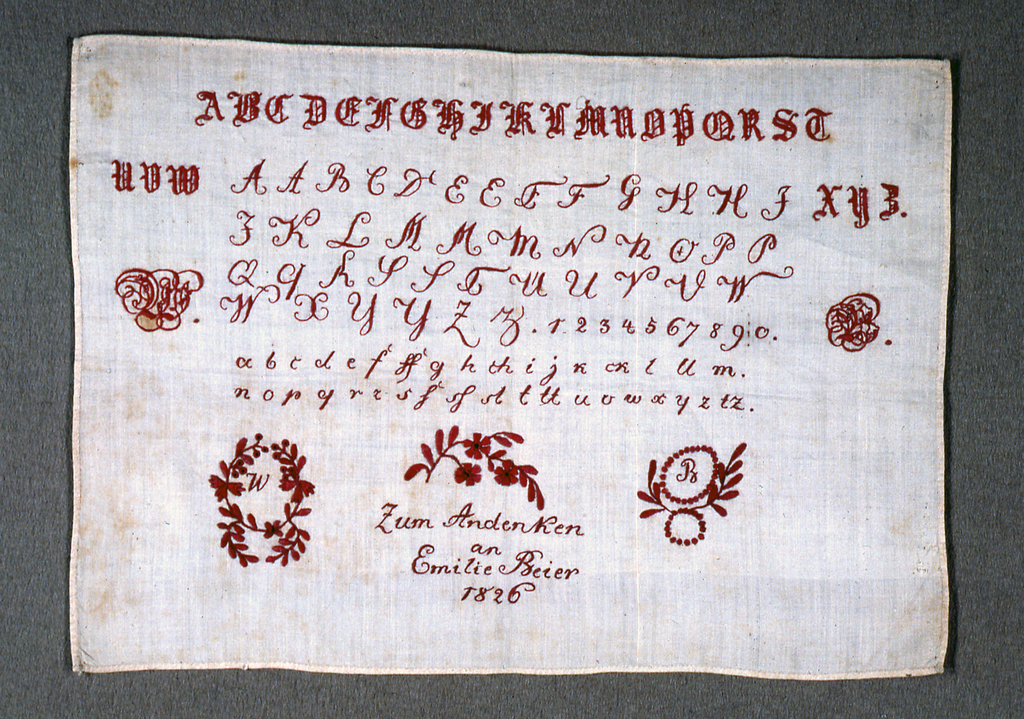 A B C D E F G H I K L M N O P Q R S T
U V W
A A B C D E E F F G H H I
X Y Z.
J K L M M M N N O P P
Q Q R S S T U U V V W
W X Y Y Z Z. 1 2 3 4 5 6 7 8 9 0.
a b c d e f ff g h ch i j k ck l ll m.
n o p q r r s ſ ſſ st t tt u v w x y z tz.
W
B
Zum Andenken
an
Emilie Beier
1826